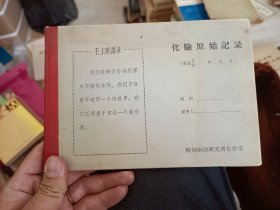 毛主席语录
我们能够学会我们原
来不懂的东西。我们不但
善于破坏一个旧世界，我
们还将善于建设一个新世
界。
化验原始记录
年 月 日
组别
鞍钢钢铁研究所化学室